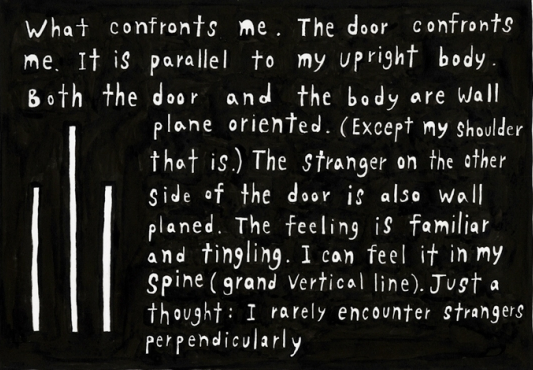 What confronts me. The door confronts
me. It is parallel to my upright body.
Both the door and the body are wall
plane oriented. (Except my shoulder
that is.) The stranger on the other
side of the door is also wall
planed. The feeling is familiar
and tingling. I can feel it in my
Spine (grand vertical line). Just a
thought: I rarely encounter strangers
perpendicularly